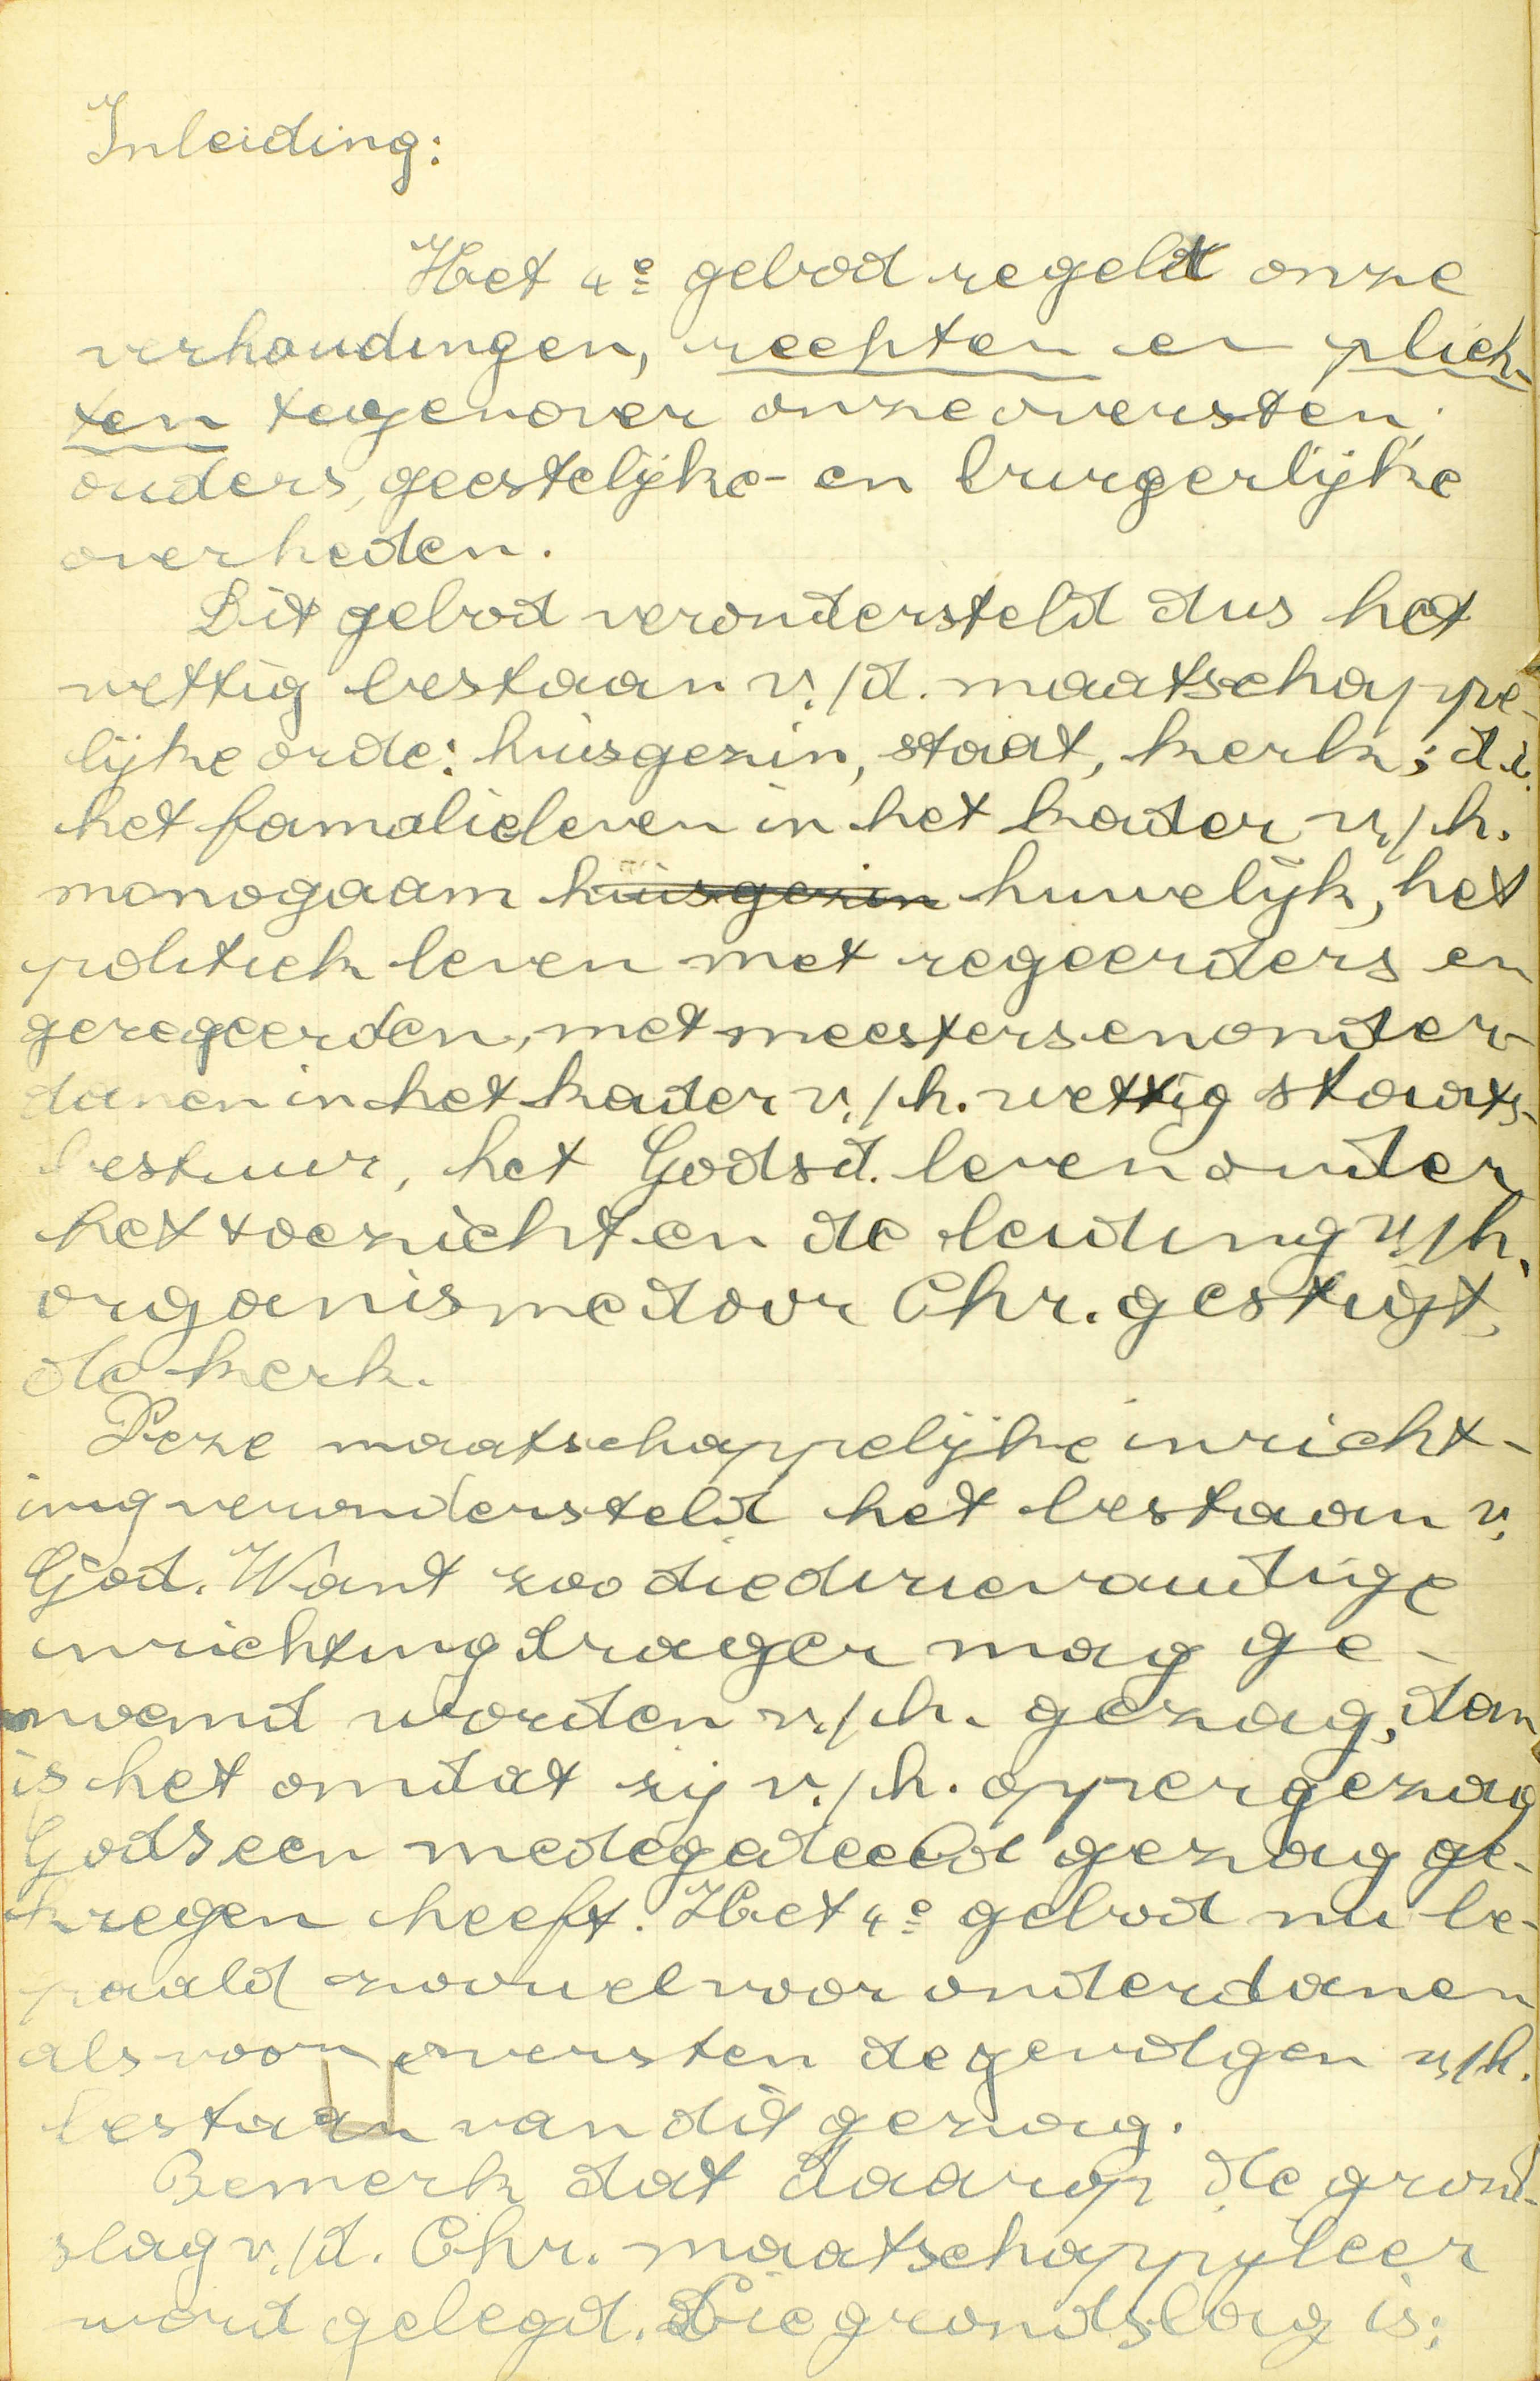 Inleiding:
Het 4e gebod regelt onze
verhoudingen, rechten en plich-
ten tegenover onze oversten,
ouders, geestelijke- en burgerlijke
overheden.
Dit gebod verondersteld dus het
wettig bestaan v./d. maatschappe-
lijke orde: huisgezin, staat, kerk; d.i.
het familieleven in het kader v./h.
monogaam huisgezin huwelijk, het
politiek leven met regeerders en
geregeerden, met meesters en onder-
danen in het kader v./h. wettig staats-
bestuur, het Godsd. leven onder
het toezicht en de leiding v/h.
organisme door Chr. gesticht,
de kerk.
Deze maatschappelijke inricht-
ing verondersteld het bestaan v.
God. Want zoo die drievoudige
inrichting drager mag ge-
noemd worden v./h. gezag, dan
is het omdat zij v./h. oppergezag
Gods een medegedeeld gezag ge-
kregen heeft. Het 4e gebod nu be-
paald zoowel voor onderdanen
als voor oversten de gevolgen v/h.
bestaan van dit gezag.
Bemerk dat daarop de grond-
slag v./d. Chr. maatschappijleer
word gelegd. Die grondslag is: